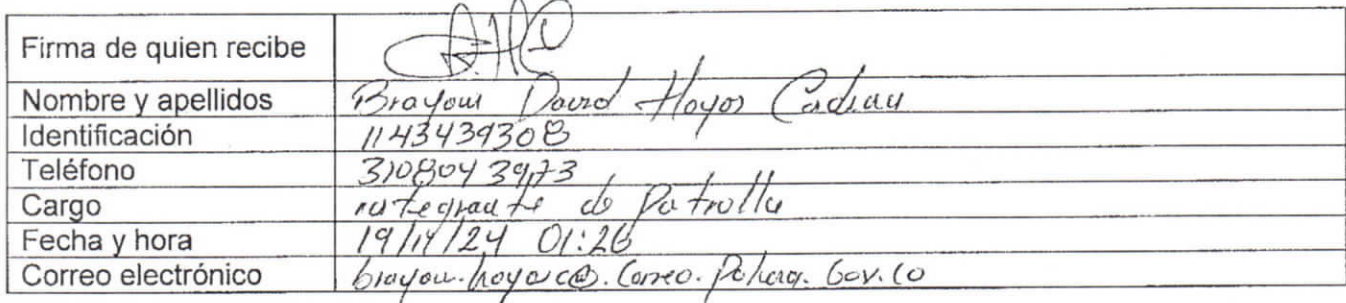 Firma de quien recibe
Nombre y apellidos Brayan David Hoyos
Identificación 1143439308
Teléfono 3108043973
Cargo integrante de Patrulla
Fecha y hora 19/11/24 01:26
Correo electrónico brayan.hoyosc@.Correo.Policia.Gov.Co